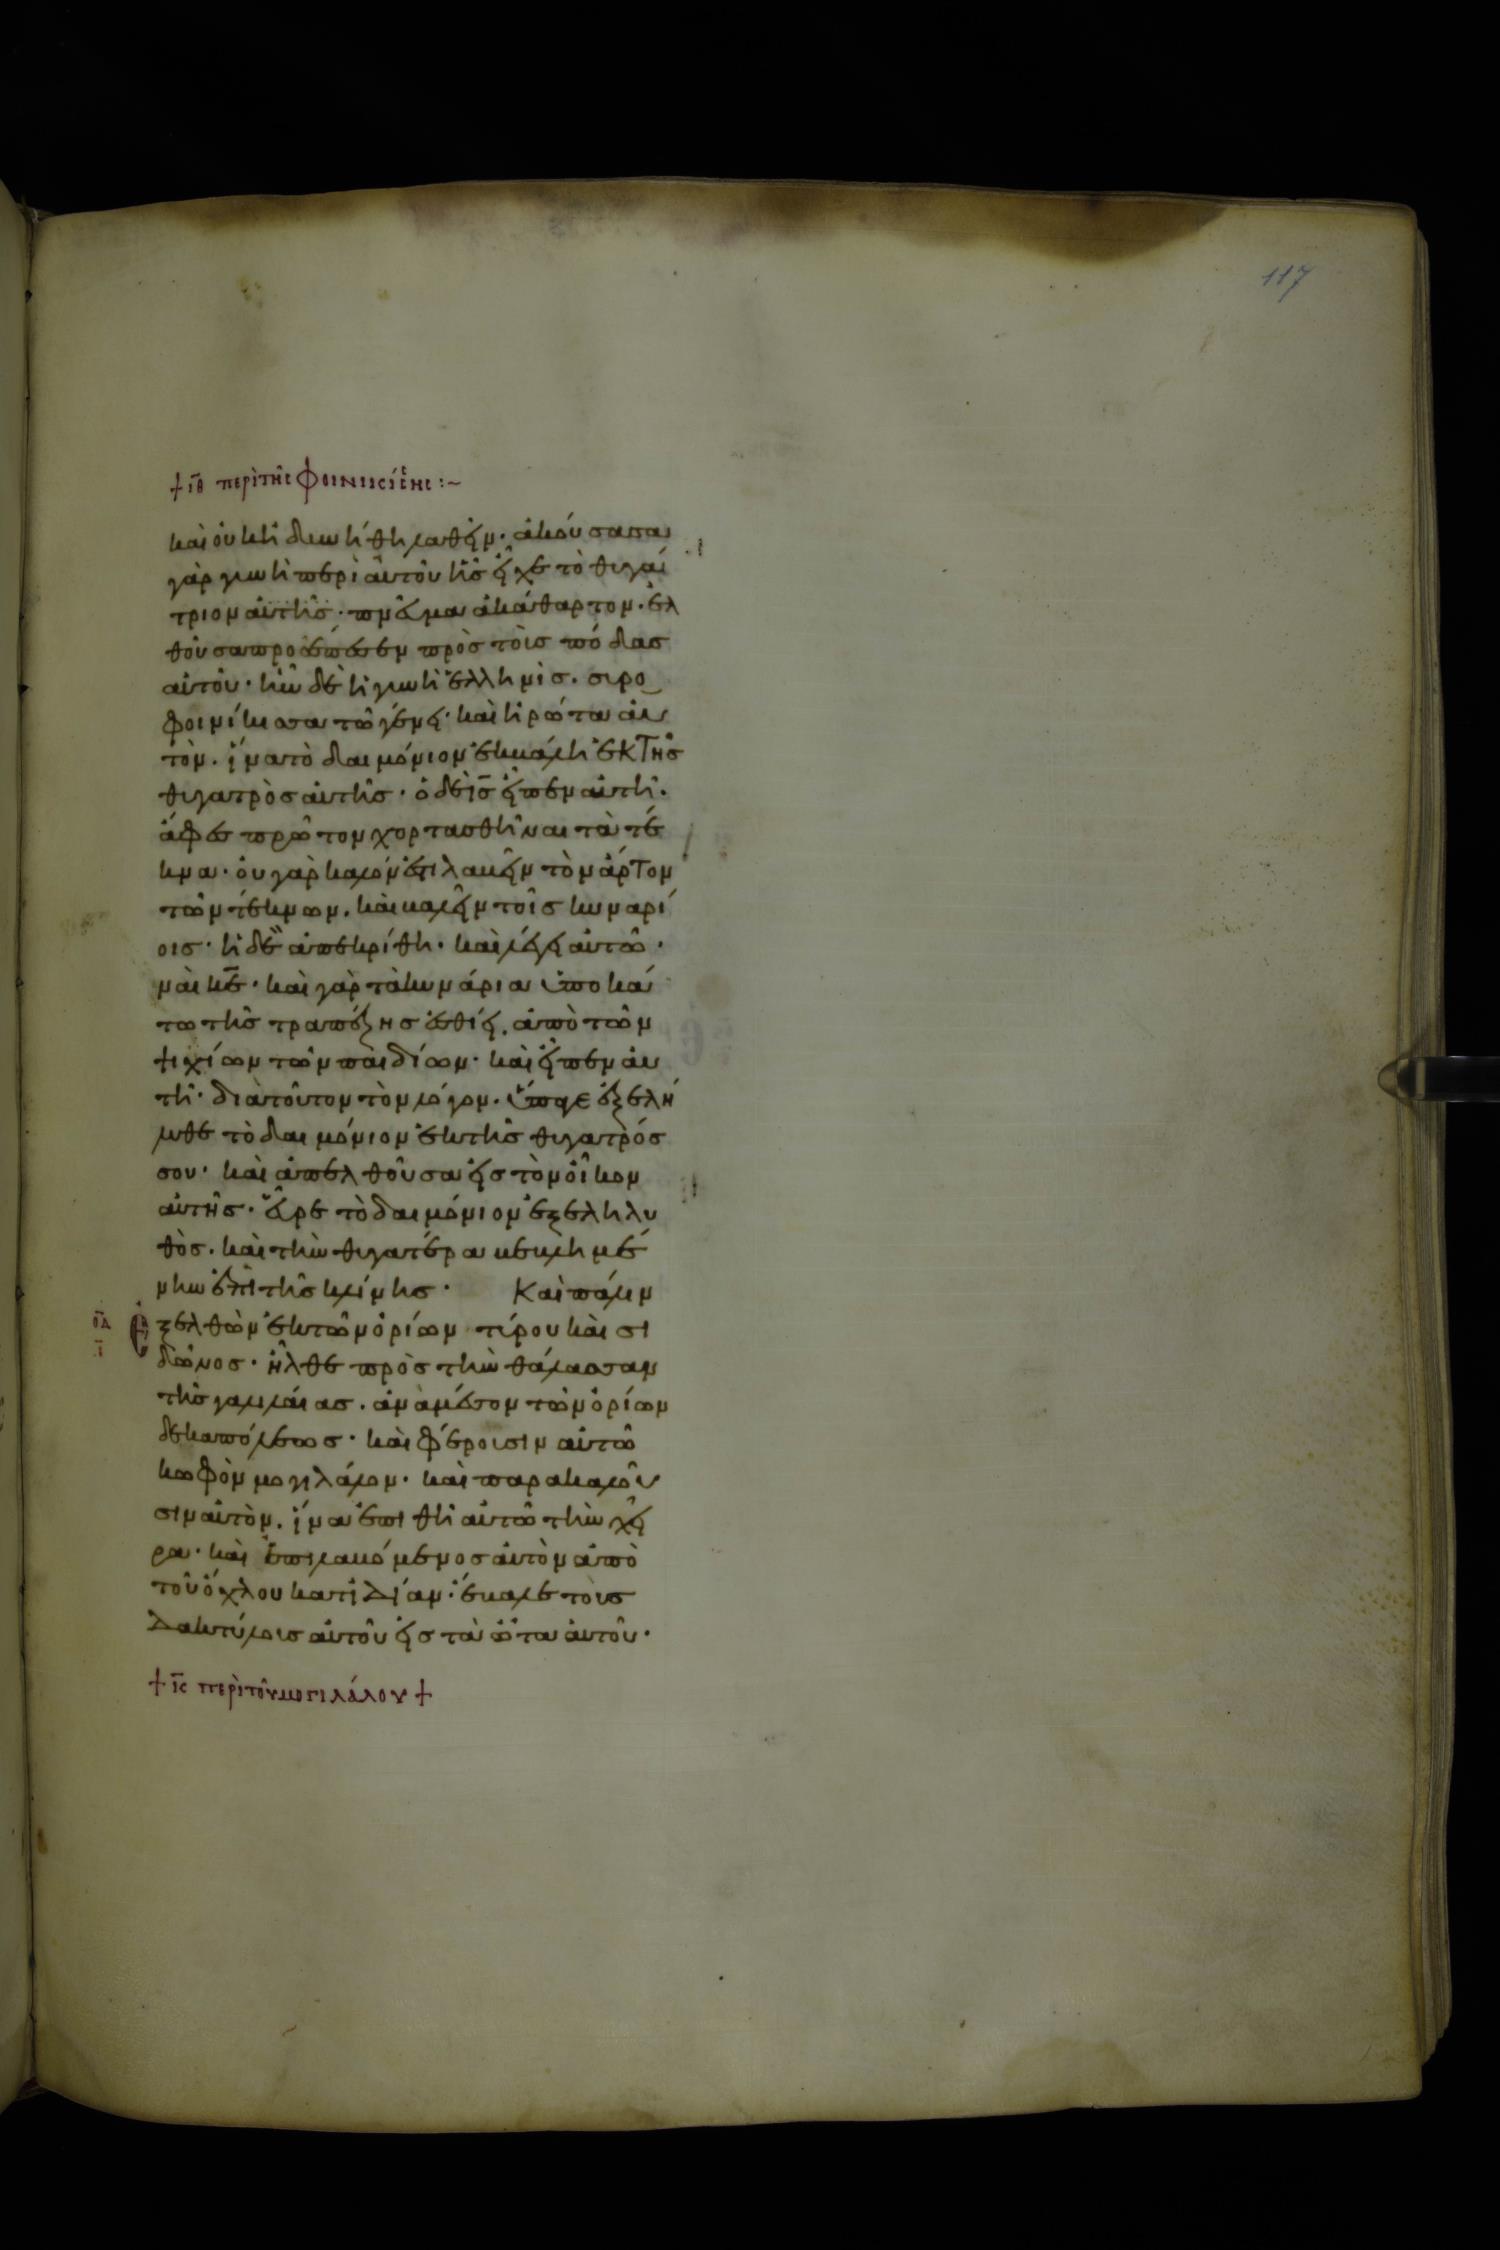 117
+ ιθ περὶ τῆς Φοινικίσσης :~
καὶ οὐκ ἠδυνήθη λαθεῖν· ἀκούσασα
γὰρ γυνὴ περὶ αὐτοῦ ἧς εἶχε τὸ θυγά
τριον αὐτῆς· πνεῦμα ἀκάθαρτον· ἐλ
θοῦσα προσέπεσεν πρὸς τοὺς πόδας
αὐτοῦ· ἦν δὲ ἡ γυνὴ ἑλληνὶς· συρο
φοινίκισσα τῶ γένει· καὶ ἠρώτα αὐ
τὸν· ἵνα τὸ δαιμόνιον ἐκβάλη ἐκ τῆς
θυγατρὸς αὐτῆς· ὁ δὲ ις̄ εἶπεν αὐτῆ·
ἄφες πρῶτον χορτασθῆναι τὰ τέ
κνα· οὐ γὰρ καλόν ἐστι λαβεῖν τὸν ἄρτον
τῶν τέκνων· καὶ βαλεῖν τοῖς κυναρί
οις· ἡ δὲ ἀπεκρίθη· καὶ λέγει αὐτῶ·
ναὶ κε̄· καὶ γὰρ τὰ κυνάρια ὑποκά
τω τῆς τραπέζης ἐσθίει· ἀπὸ τῶν
ψιχίων τῶν παιδίων· καὶ εἶπεν αὐ
τῆ· διὰ τοῦτον τὸν λόγον· ὕπαγε ἐξελή
λυθε τὸ δαιμόνιον ἐκ τῆς θυγατρός
σου· καὶ ἀπελθοῦσα εἰς τὸν οἶκον
αὐτῆς· εὗρε τὸ δαιμόνιον ἐξεληλυ
θὸς· καὶ τὴν θυγατέρα βεβλημέ
νην ἐπὶ τῆς κλίνης· Καὶ πάλιν
οδ
ι
Ἐξελθὼν ἐκ τῶν ὁρίων τύρου καὶ σι
δῶνος· ἦλθε πρὸς τὴν θάλασσαν
τῆς γαλιλαίας· ἀνὰ μέσον τῶν ὁρίων
δεκαπόλεως· καὶ φέρουσιν αὐτῶ
κωφὸν μογιλάλον· καὶ παρακαλοῦ
σιν αὐτὸν· ἵνα ἐπιθῆ αὐτῶ τὴν χεῖ
ρα· καὶ ἐπιλαβόμενος αὐτὸν ἀπὸ
τοῦ ὄχλου κατ ἰδίαν· ἔβαλε τοὺς
δακτύλους αὐτοῦ εἰς τὰ ὦτα αὐτοῦ·
+ ις περὶ τοῦ μογιλάλου +